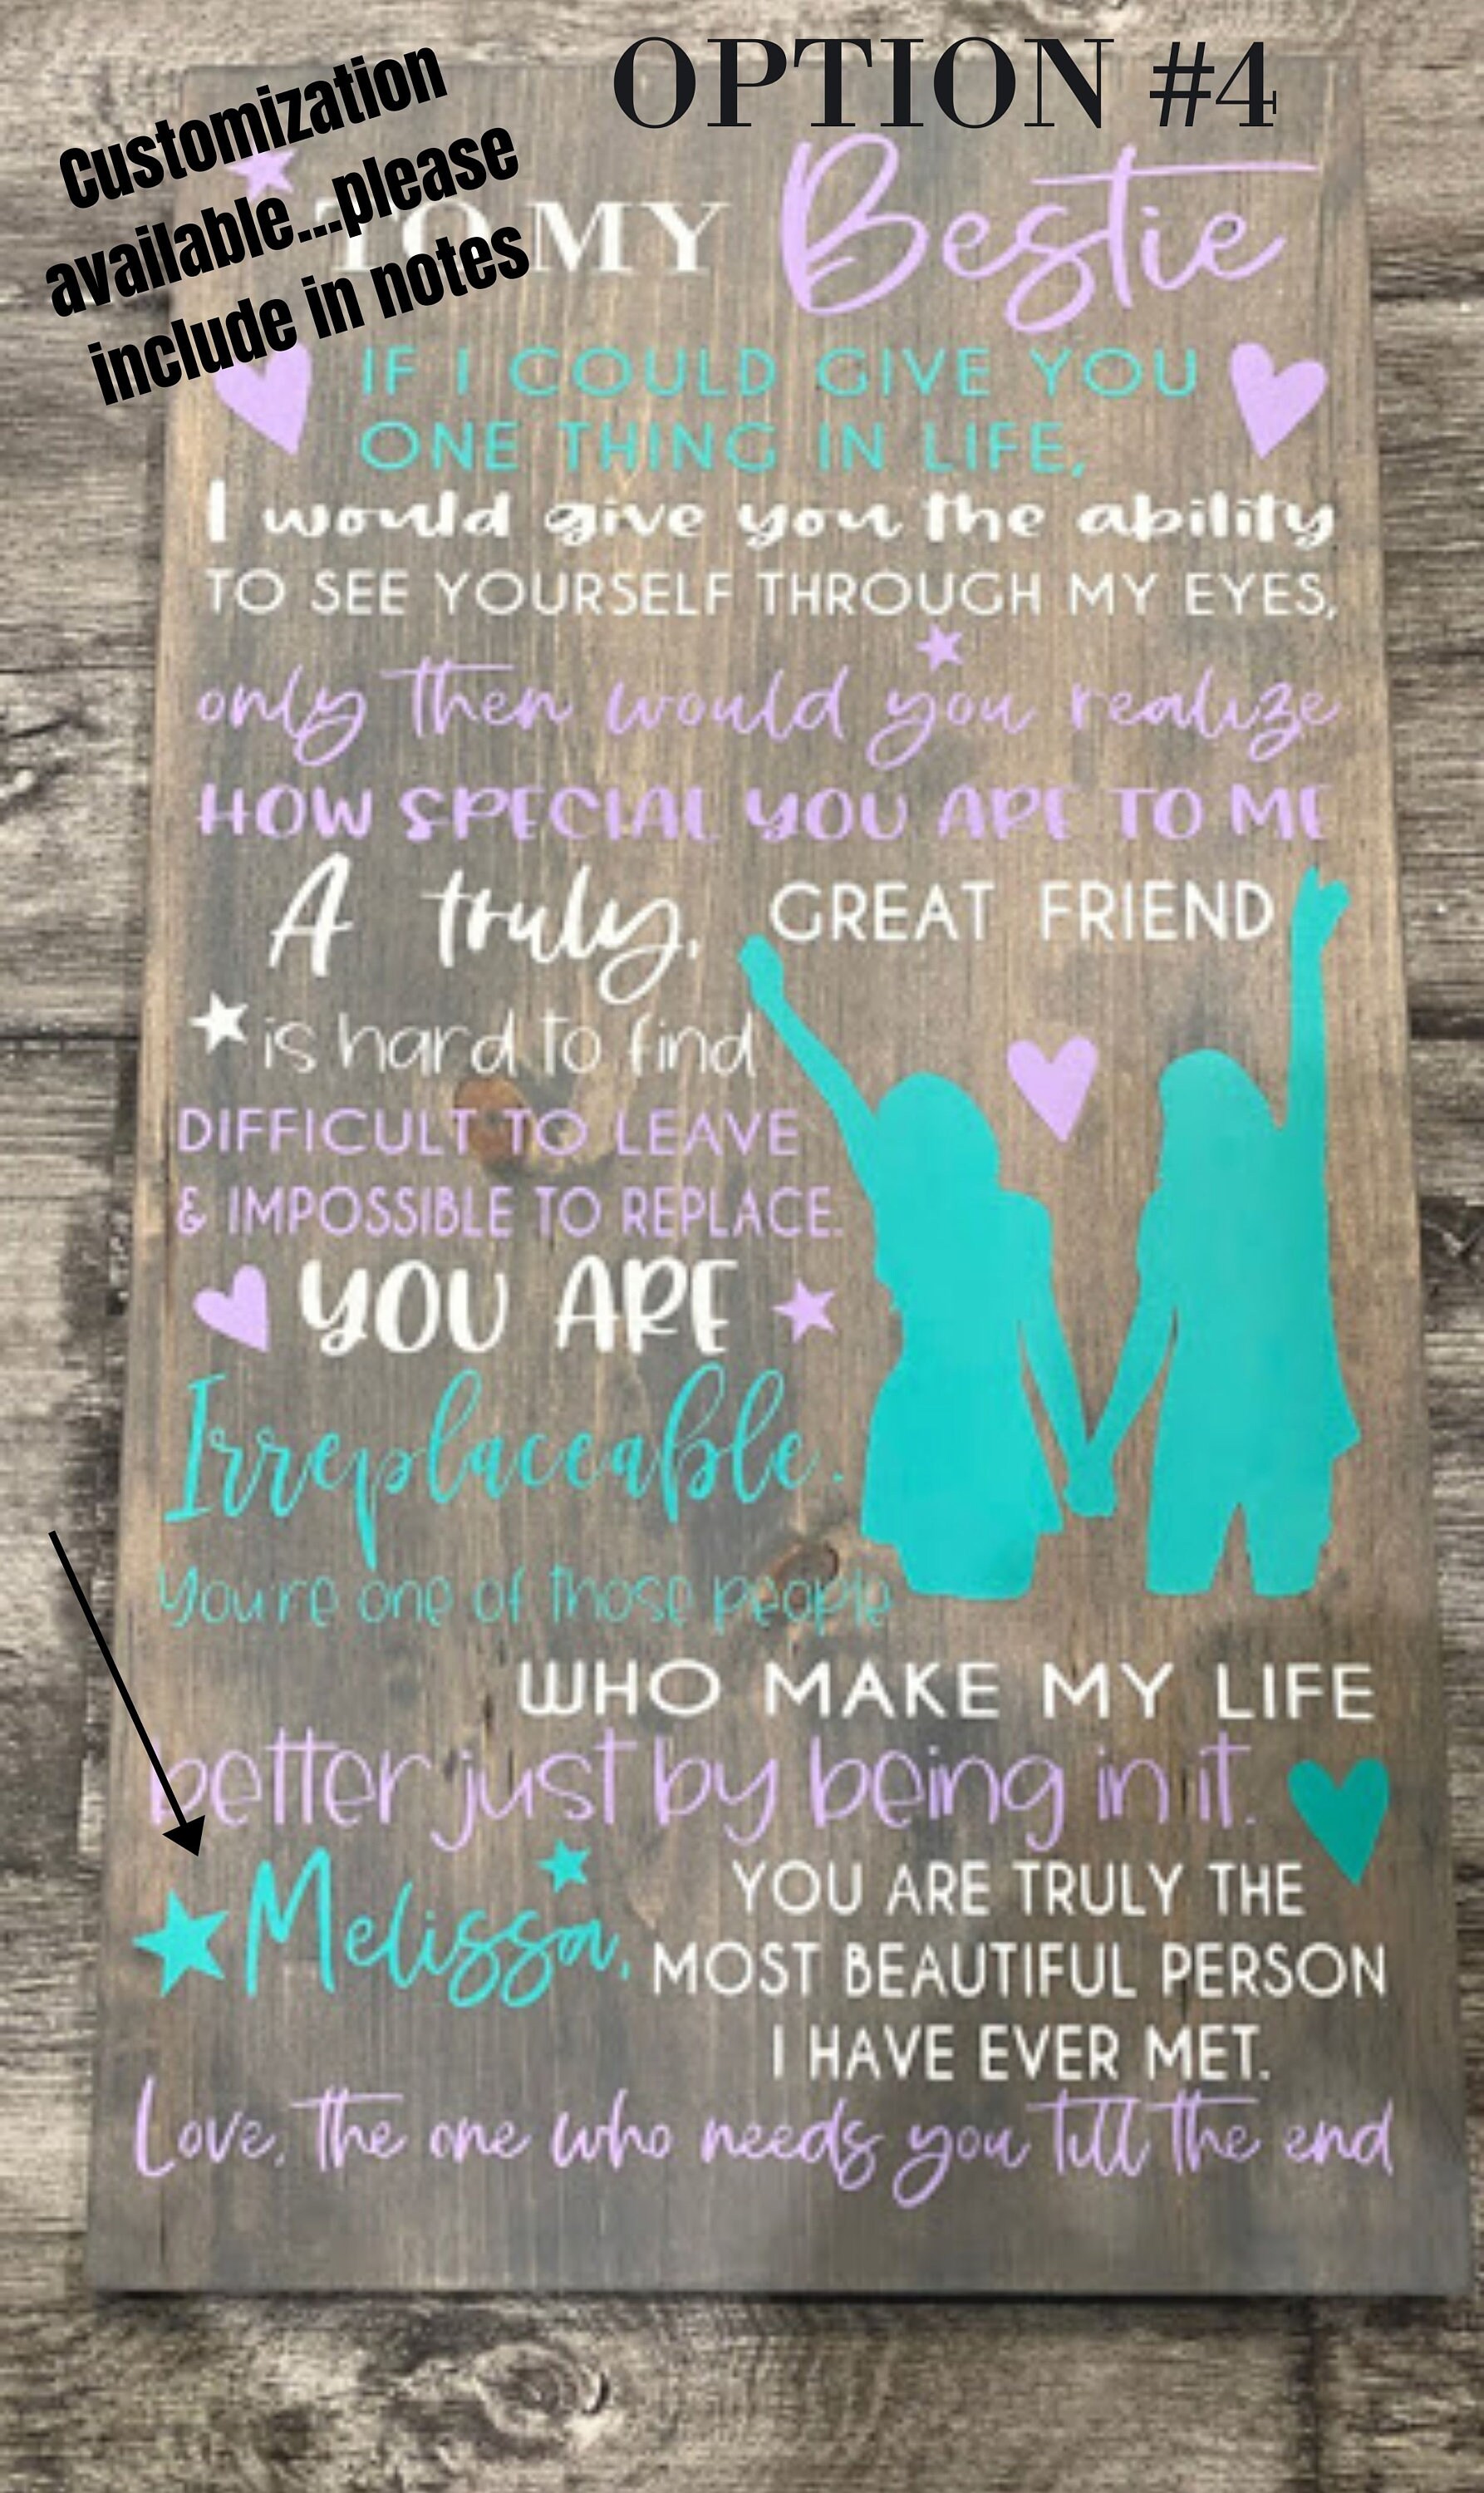 OPTION #4
Customization
available...please
include in notes
TO MY Bestie
IF I COULD GIVE YOU
ONE THING IN LIFE,
I would give you the ability
TO SEE YOURSELF THROUGH MY EYES,
only then would you realize
HOW SPECIAL YOU ARE TO ME
A truly, GREAT FRIEND
is hard to find
DIFFICULT TO LEAVE
& IMPOSSIBLE TO REPLACE.
YOU ARE
Irreplaceable.
You're one of those people
WHO MAKE MY LIFE
better just by being in it.
Melissa, YOU ARE TRULY THE
MOST BEAUTIFUL PERSON
I HAVE EVER MET.
Love, the one who needs you till the end